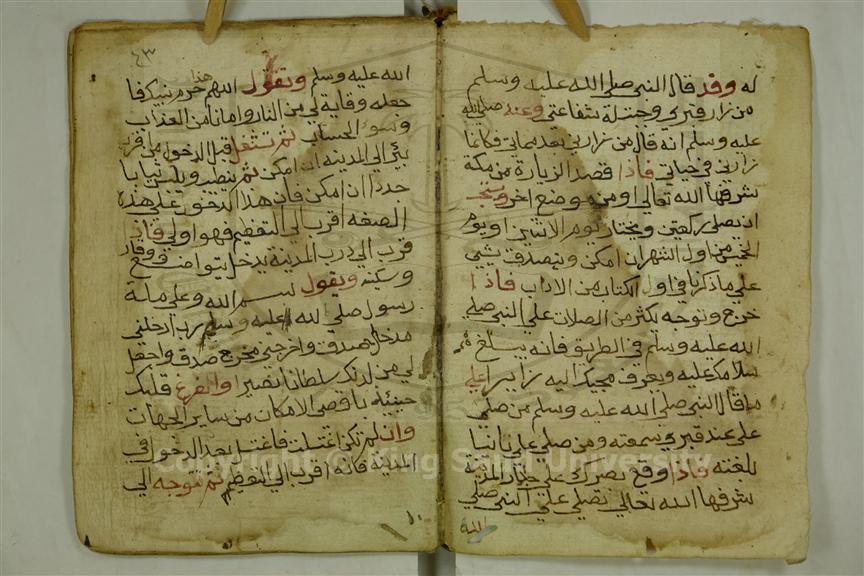 له وقد قال النبي صلى الله عليه وسلم
من زار قبري وجبت له شفاعتي وعنه صلى الله
عليه وسلم انه قال من زارني بعد مماتي فكانما
زارني في حياتي فاذا قصد الزيارة من مكة
شرفها الله تعالى او من موضع اخر
ان يصلي ركعتين ويختار يوم الاثنين او يوم
الخميس من اول الشهر ان امكن ويتصدق بشي
على ما ذكرنا في اول الكتاب من الاداب فاذا
خرج وتوجه يكثر من الصلات على النبي صلى
الله عليه وسلم في الطريق فانه يبلغ
سلامك عليه ويعرف مجيك اليه زايرا على
ما قال النبي صلى الله عليه وسلم من صلى
على عند قبري سمعته ومن صلى علي نائيا
بلغته فاذا وقع بصرك على المدينة
شرفها الله تعالى تصلي على النبي صلى
الله
٤٣
الله عليه وسلم وتقول اللهم هذا حرم نبيك فا
جعله وقاية لي من النار وامانا من العذاب
وسوء الحساب ثم تغتسل قبل الدخول من
الى المدينة ان امكن ثم وتلبس ثيابا
جددا ان امكن فان هذا الدخول على هذه
الصفة اقرب الى التعظيم فهو اولى فاذا
قرب الى درب المدينة يدخل بتواضع ووقار
وسكينة ويقول بسم الله وعلى ملة
رسول صلى الله عليه وسلم رب ادخلني
مدخل صدق واخرجني مخرج صدق واجعل
لي من لدنك سلطانا نصيرا قلبك
حينيذ باقصى الامكان من ساير الجهات
وان لم تكن اغتسلت فاغتسل بعد الدخول في
المدينة فانه اقرب الى التعظيم ثم تتوجه الى
Copyright © King Saud University